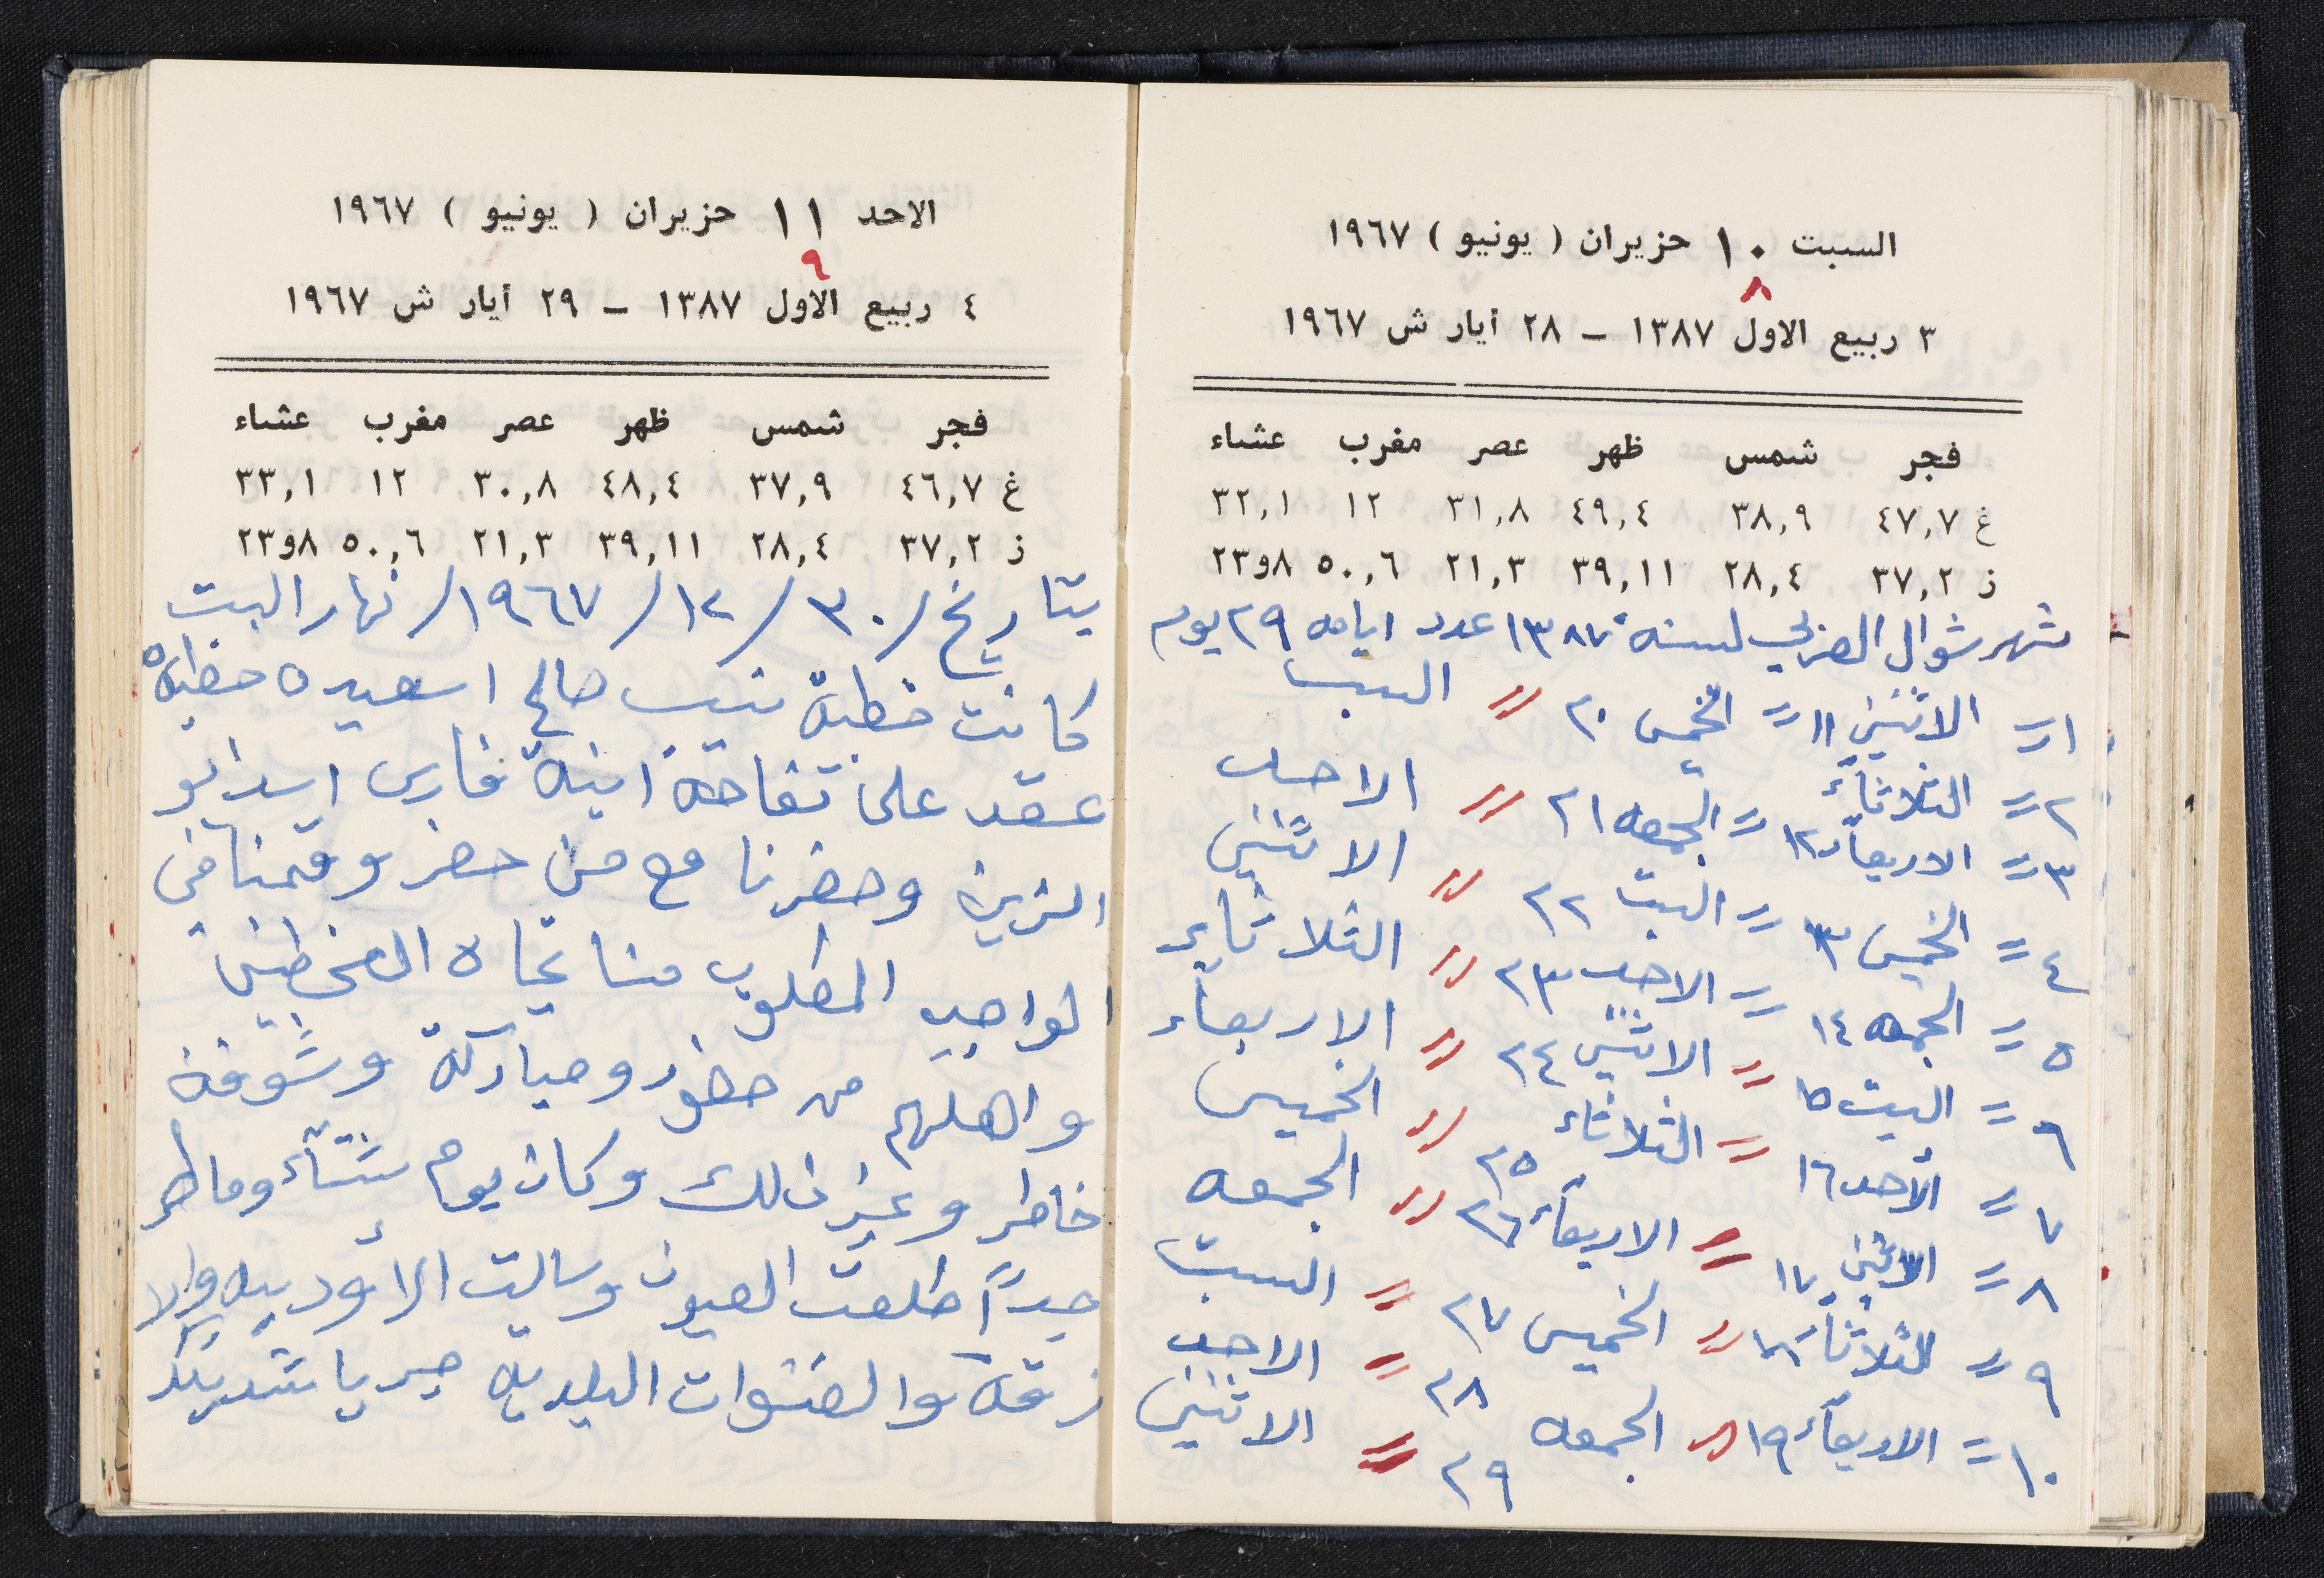 السبت ١٠ حزيران ( يونيو ) ١٩٦٧
٨
٣ ربيع الاول ١٣٨٧ – ٢٨ أيار ش ١٩٦٧
فجر شمس ظهر عصر مغرب عشاء
غ ٤٧,٧ ٣٨,٩ ٤٩,٤ ٣١,٨ ١٢ ٣٢,١
ز ٣٧,٢ ٢٨,٤ ٣٩,١١ ٢١,٣ ٥٠,٦ ٨و٢٣
شهر شوال العربي لسنة ١٣٨٧ عدد ايامه ٢٩ يوم
١ = الاثنين ١١ = الخميس ٢٠ = السبت
٢ = الثلاثاء ١٢ = الجمعه ٢١ = الاحد
٣ = الاربعاء ١٣ = السبت ٢٢ = الاثنين
٤ = الخميس = الاحد ٢٣ = الثلاثاء
٥ = الجمعه ١٤ = الاثنين ٢٤ = الاربعاء
٦ = السبت ١٥ = الثلاثاء ٢٥ = الخميس
٧ = الأحد ١٦ = الاربعاء ٢٦ = الجمعه
٨ = الاثنين ١٧ = الخميس ٢٧ = السبت
٩ = الثلاثاء ١٨ = الجمعه ٢٨ = الاحد
١٠ = الاربعاء ١٩ ٢٩ = الاثنين
الاحد ١١ حزيران ( يونيو ) ١٩٦٧
٩
٤ ربيع الاول ١٣٨٧ – ٢٩ أيار ش ١٩٦٧
فجر شمس ظهر عصر مغرب عشاء
غ ٤٦,٧ ٣٧,٩ ٤٨,٤ ٣٠,٨ ١٢ ٣٣,١
ز ٣٧,٢ ٢٨,٤ ٣٩,١١ ٢١,٣ ٥٠,٦ ٨و٢٣
بتاريخ / ٣٠ / ١٢ / ١٩٦٧ / نهار السبت
كانت خطبة نسيب صالح اسعيده خطبه
عقد على تفاحه ابنة فارس ابو
الزين وحضرنا مع من حضر وقمنا في
الواجب المطلوب منا تجاه المخطبين
واهلهم من حضور ومباركة وشوفة
خاطر وغير ذلك وكان يوم شتاء وماطر
جداً طلعت العيون وسالت الأوديه والا
زقة والقنوات البلديه جريا شديدا